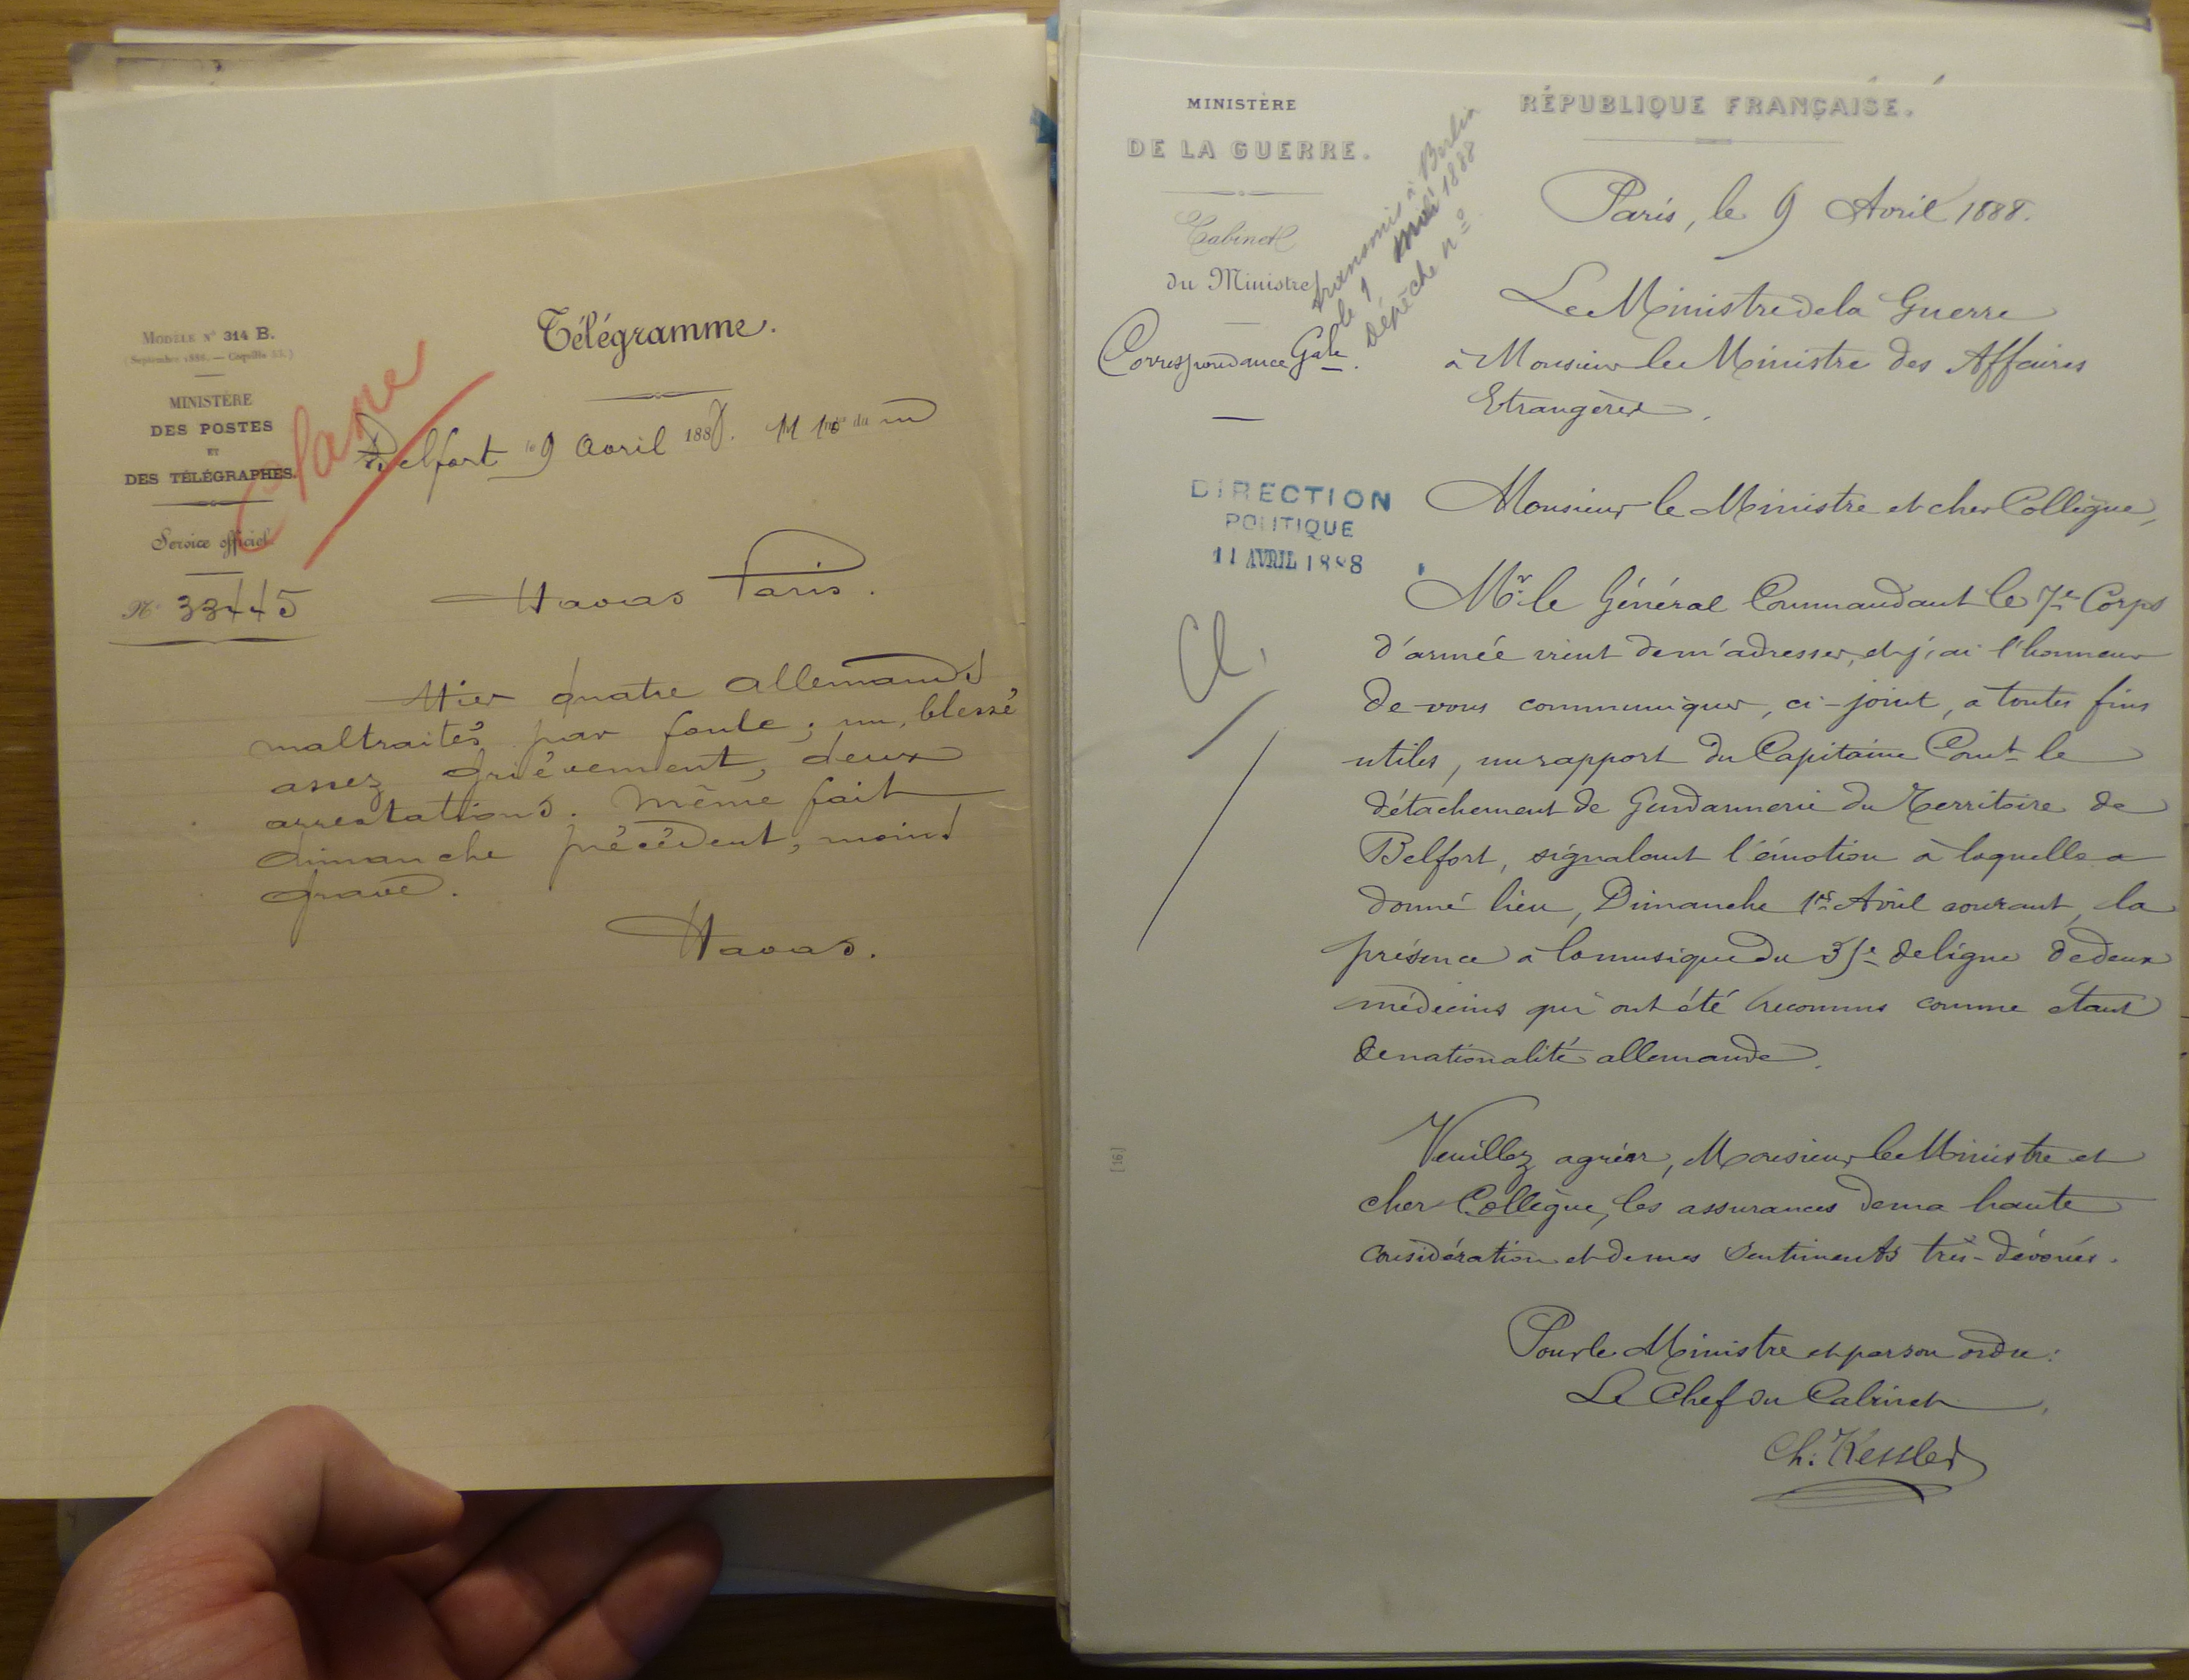 MODÈLE N° 314 B.
MINISTÈRE
DES POSTES
ET
DES TÉLÉGRAPHES.
Service officiel
N° 33445
Télégramme.
Belfort le 9 avril 1888. 11 10 du m
Havas Paris.
Hier quatre allemands
maltraités par foule; un, blessé
assez grièvement, deux
arrestations. Même fait
dimanche précédent, moins
grave.
Havas.
MINISTÈRE
DE LA GUERRE.
Cabinet
du Ministre
Correspondance Gale.
transmis à Berlin
le 1 1888
dépêche n°
DIRECTION
POLITIQUE
11 AVRIL 1888
Cl.
[16]
RÉPUBLIQUE FRANÇAISE.
Paris, le 9 Avril 1888.
Le Ministre de la Guerre
à Monsieur le Ministre des Affaires
Etrangères.
Monsieur le Ministre et cher Collègue,
Mr. le Général Commandant le 7e Corps
d'armée vient de m'adresser, et j'ai l'honneur
de vous communiquer, ci-joint, à toutes fins
utiles, un rapport du Capitaine Comt le
détachement de Gendarmerie du Territoire de
Belfort, signalant l'émotion à laquelle a
donné lieu, Dimanche 1er Avril courant, la
présence à la musique du 35e de ligne de deux
médecins qui ont été reconnus comme étant
de nationalité allemande.
Veuillez agréer, Monsieur le Ministre et
cher Collègue, les assurances de ma haute
considération et de mes sentiments très-dévoués.
Pour le Ministre et par son ordre:
Le Chef du Cabinet,
Ch. Kessler